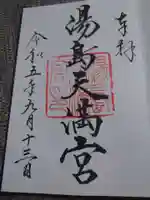 奉拝
湯島天満宮
令和五年九月十三日